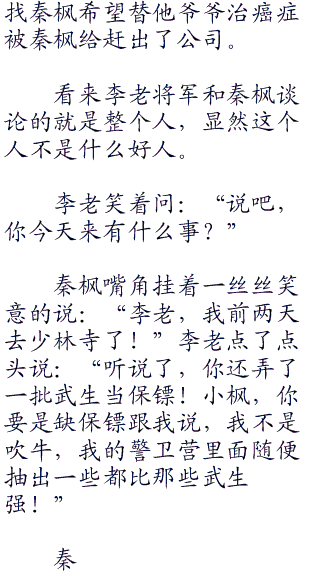 找秦枫希望替他爷爷治癌症
被秦枫给赶出了公司。
看来李老将军和秦枫谈
论的就是整个人，显然这个
人不是什么好人。
李老笑着问：“说吧，
你今天来有什么事？”
秦枫嘴角挂着一丝丝笑
意的说：“李老，我前两天
去少林寺了！”李老点了点
头说：“听说了，你还弄了
一批武生当保镖！小枫，你
要是缺保镖跟我说，我不是
吹牛，我的警卫营里面随便
抽出一些都比那些武生
强！”
秦